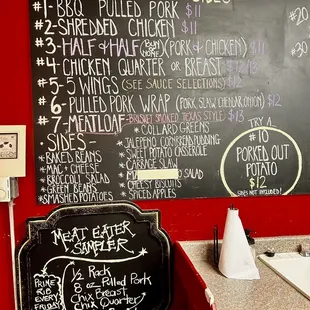 SIDES
#1- BBQ PULLED PORK $11
#2- SHREDDED CHICKEN $11
#3- HALF & HALF (PORK & CHICKEN) $11
#4- CHICKEN QUARTER OR BREAST
#5- 5 WINGS (SEE SAUCE SELECTIONS)
#6- PULLED PORK WRAP (PORK SLAW CHEDDAR ONION) $12
#7- MEATLOAF- BRISKET SMOKED TEXAS STYLE $13
SIDES-
*BAKED BEANS
*MAC + CHEESE
*BROCCOLI SALAD
*GREEN BEANS
*MASHED POTATOES
*COLLARD GREENS
*JALEPENO CORNBREAD PUDDING
*SWEET POTATO CASSEROLE
*CABBAGE SLAW
SALAD
*CHEESY BISCUITS
*SPICED APPLES
TRY A
#10
PORKED OUT
POTATO
$12
SIDES NOT INCLUDED!
#20
#30
MEAT EATER
SAMPLER
½ Rack
8 oz Pulled Pork
Chix Breast
Chix Quarter
PRIME
RIB
EVERY
FRIDAY